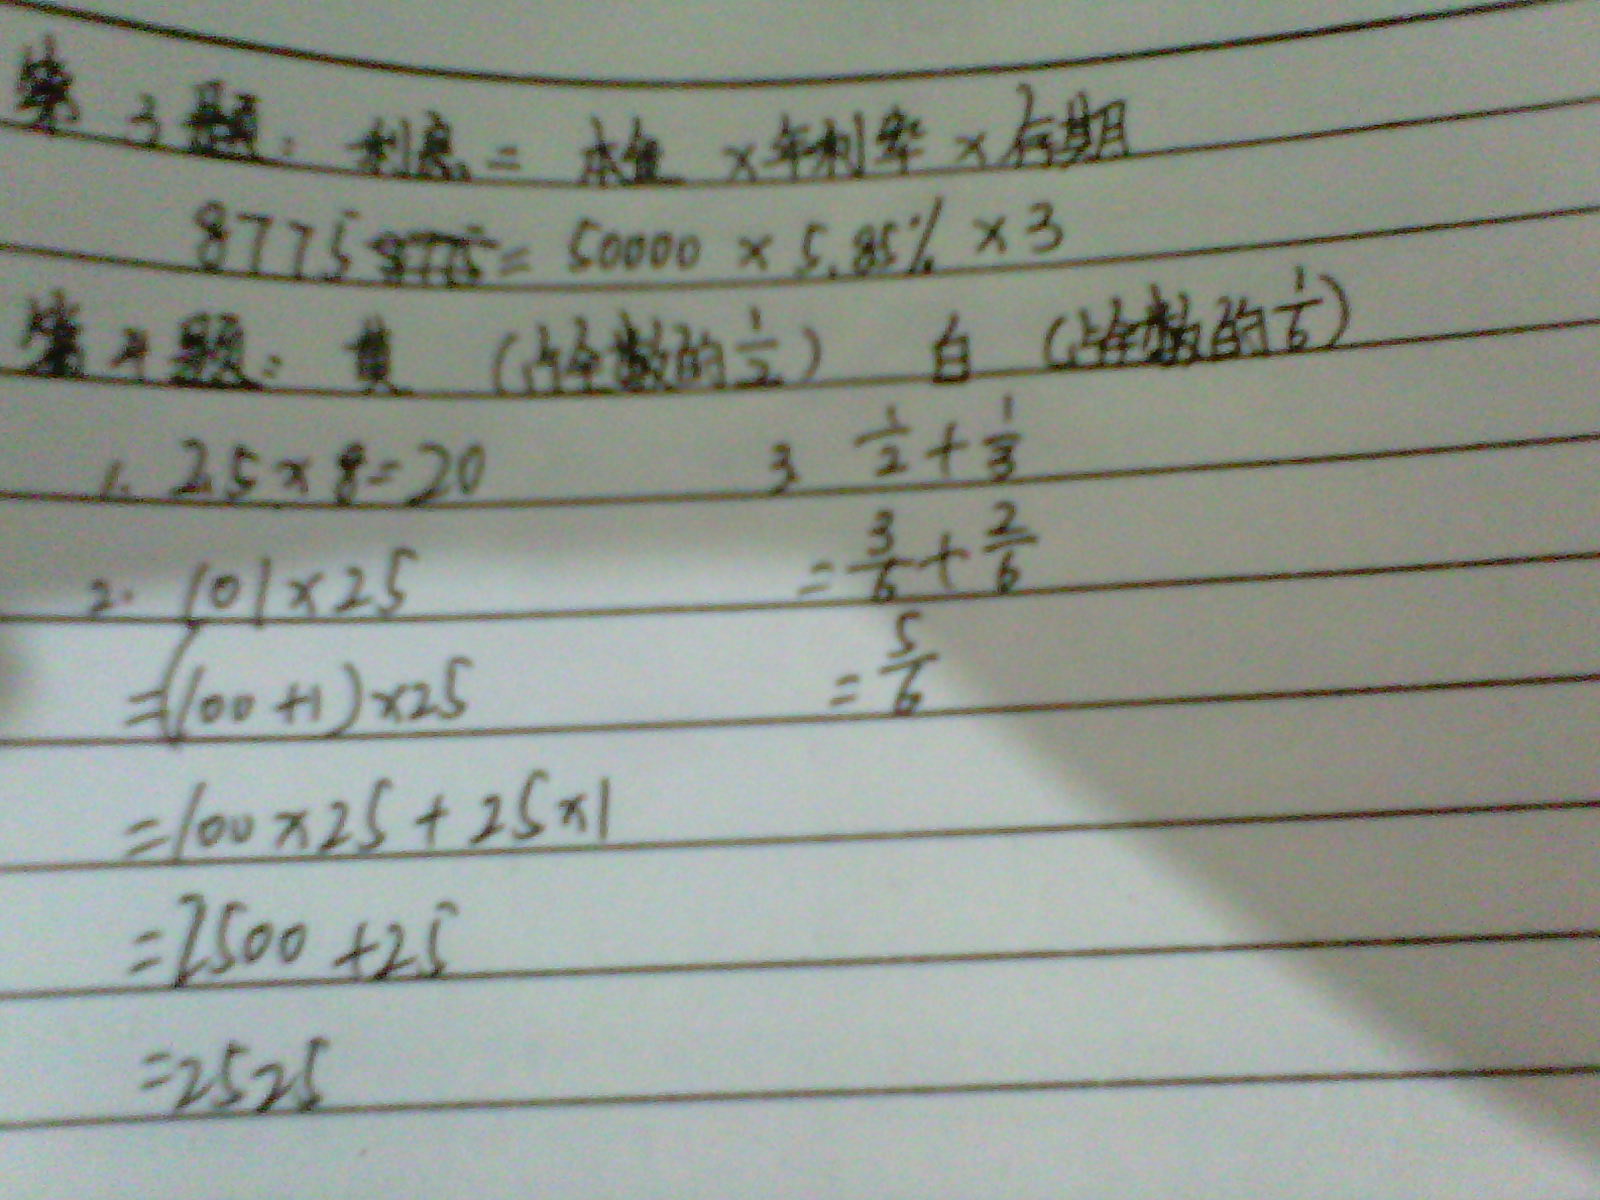 第3题: 利息 = 本金 × 年利率 × 存期
8775 = 50000 × 5.85% × 3
第4题: 黄 (占全数的1/2) 白 (占全数的1/6)
1. 2.5×8=20
3. 1/2+1/3
2. 101×25
=3/6+2/6
=(100+1)×25
=5/6
=100×25+25×1
=2500+25
=2525